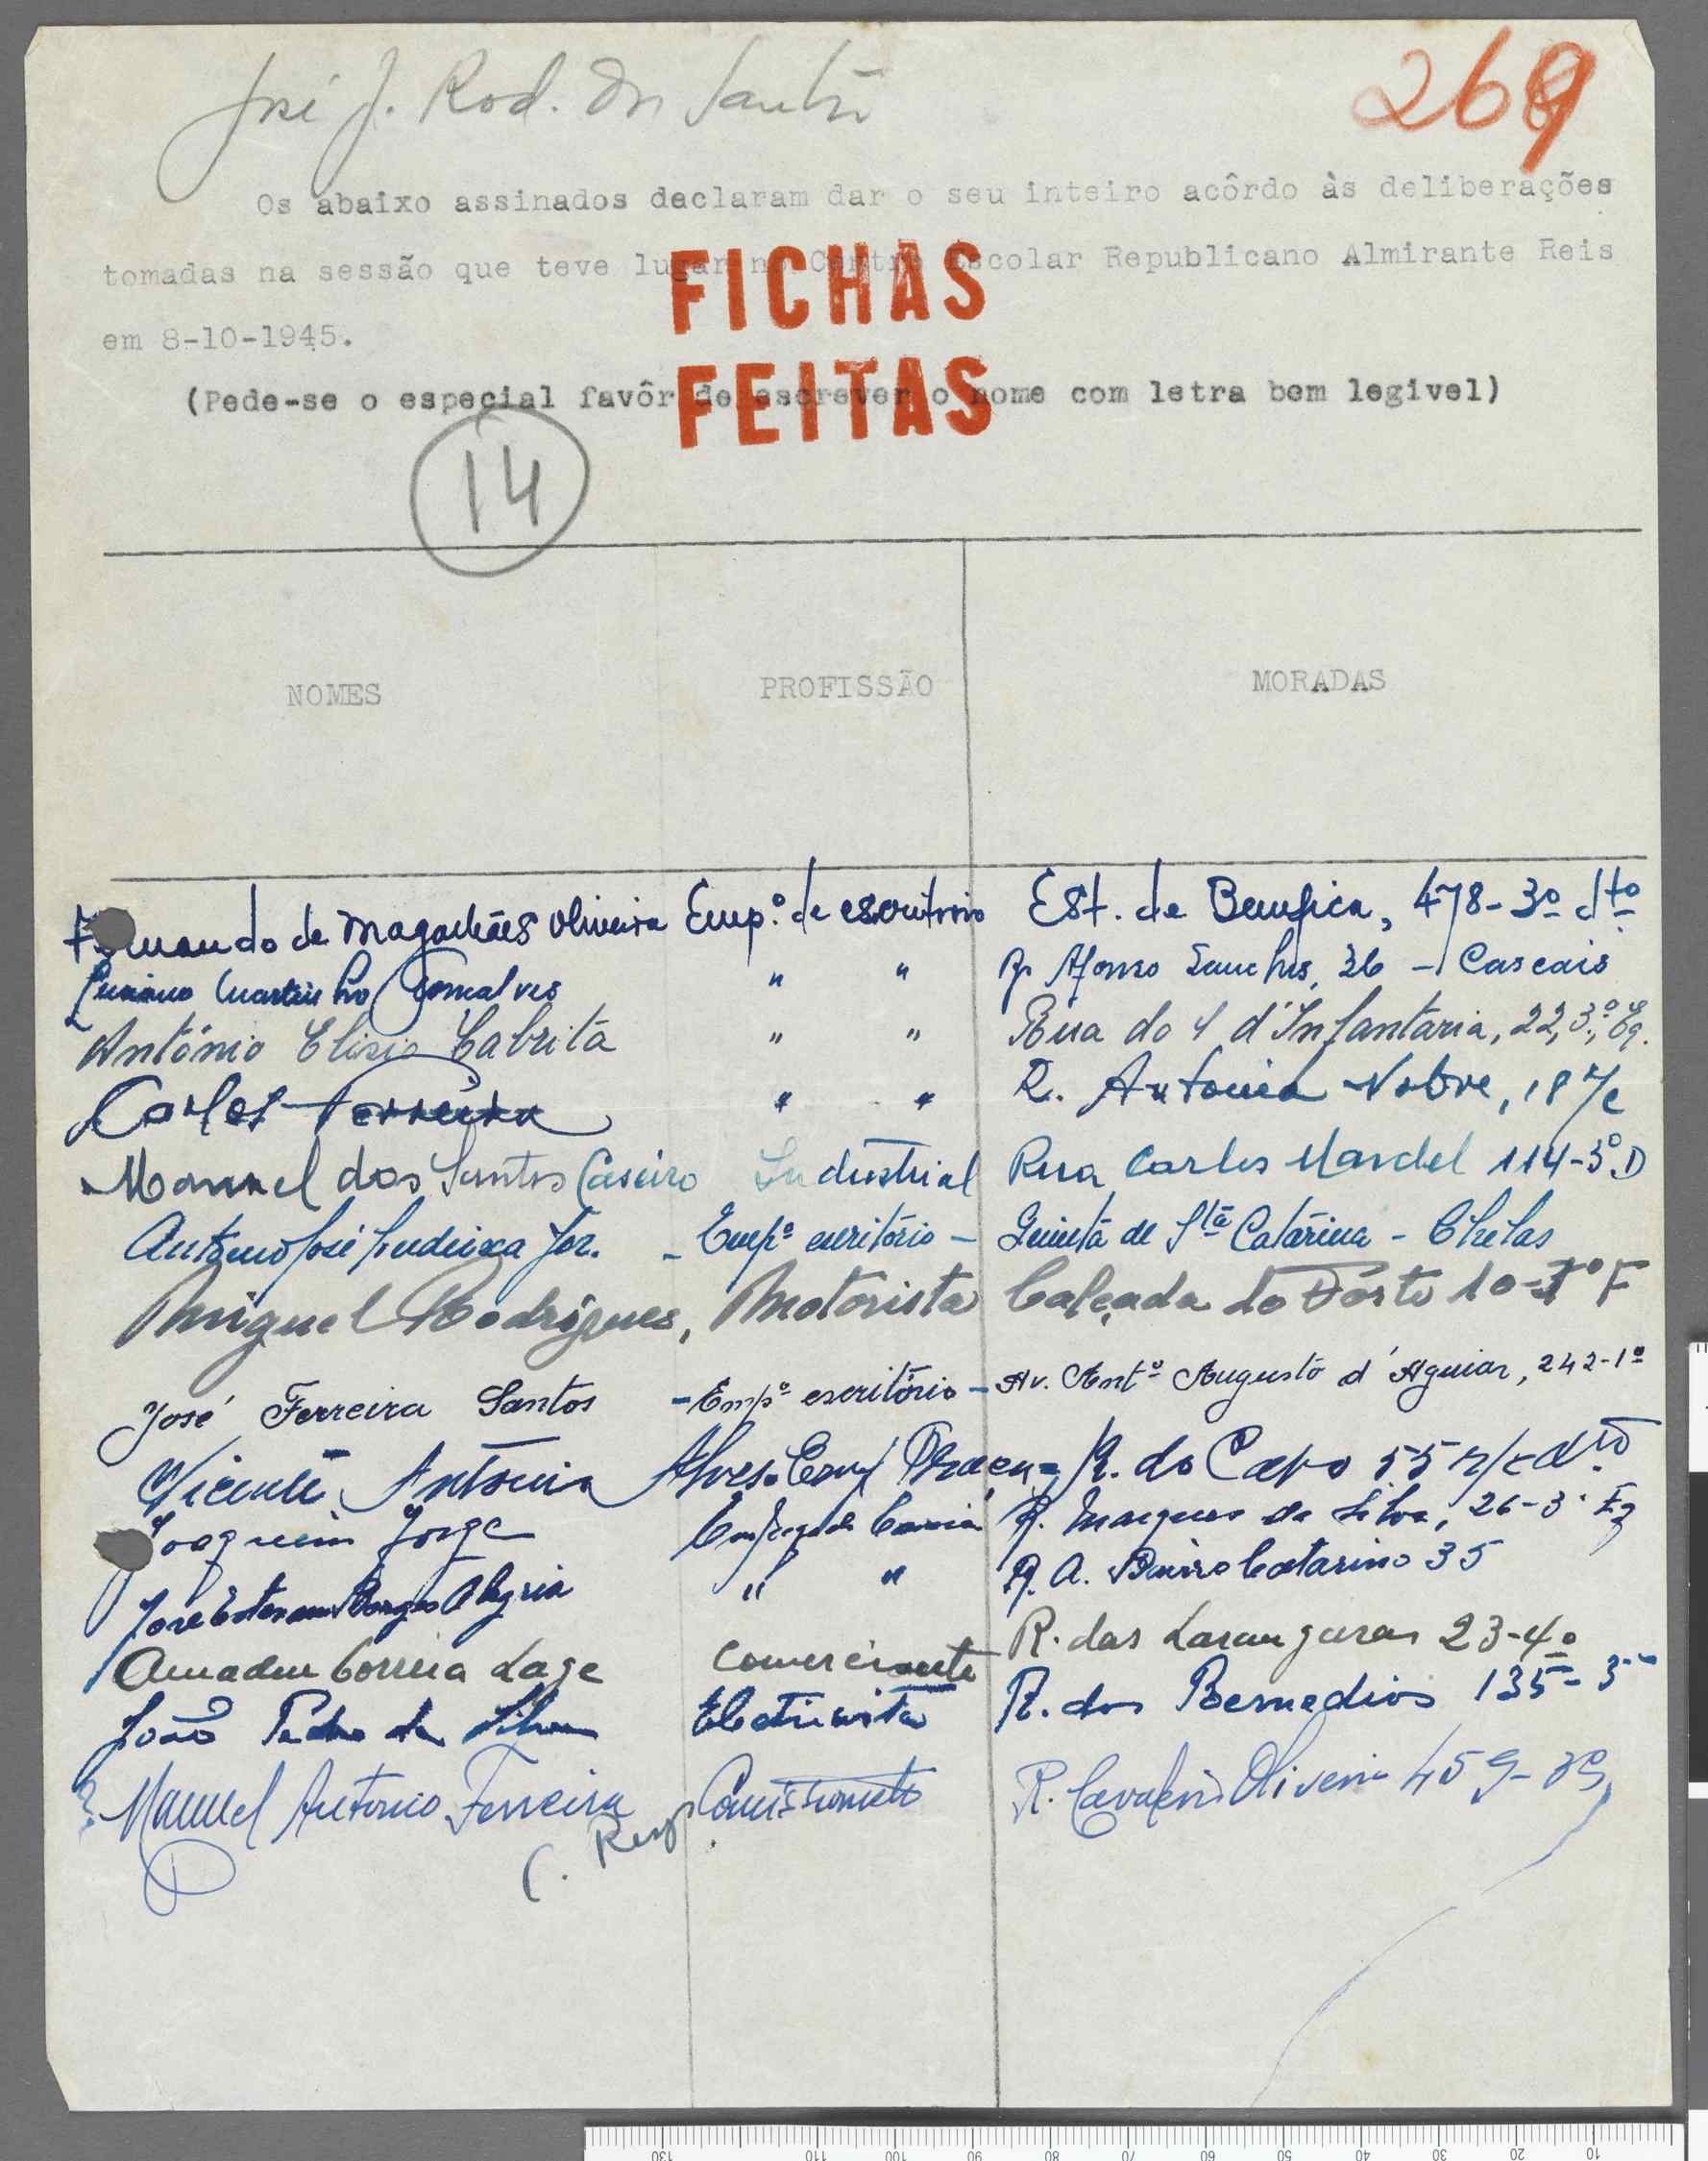 José J. Rod. dos Santos
269
Os abaixo assinados declaram dar o seu inteiro acôrdo às deliberações
tomadas na sessão que teve lugar no Centro Escolar Republicano Almirante Reis
em 8-10-1945.
FICHAS
FEITAS
(Pede-se o especial favôr de escrever o nome com letra bem legivel)
14
NOMES PROFISSÃO MORADAS
Fernando de Magalhães Oliveira Emp.º de escritorio Est. de Benfica, 478-3º dtº
Martinho Gonçalves " " R. Afonso Sanches, 36 - Cascais
António Elisio Cabrita " " Rua do 4 d'Infantaria, 22, 3.º Eq.
Carlos Ferreira " " R. Antonio Nobre, 18 r/c
Manuel dos Santos Caseiro Industrial Rua Carlos Mardel 114-3º D
Antonio José Jor. - Empº escritório - Quinta de Stª Catarina - Chelas
Miguel Rodrigues, Motorista Calçada do Forte 10-1º F
José Ferreira Santos - Empº escritório - Av. Antº Augusto d'Aguiar, 242-1º
Vicente Antonio Alves R. do Capo 55 r/c dtº
Joaquim Jorge R. Marques da Silva, 26-3º Eq
José Borges Alegria " " R. A. Bairro Catarino 35
Amadeu Correia Lage Comerciante R. das Laranjeiras 23-4º
João Pedro da Silva Electricista R. dos Remedios 135-3º
Manuel Antonio Ferreira R. Oliveira 459
C.